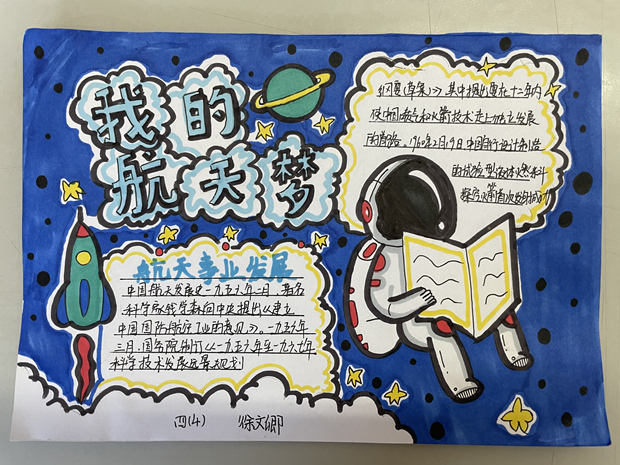 我的
航天梦
航天事业发展
中国航天发展史一九五六年二月,著名
科学家钱学森向中央提出《建立
中国国防航空工业的意见》。一九五六年
三月,国务院制订《一九五六年至一九六七年
科学技术发展远景规划
纲要(草案)》,其中提出要在十二年内
使中国喷气和火箭技术走上独立发展
的道路。
年2月19日中国自行设计制造
的试验型液体燃料
探空火箭首次发射成功
四(4) 徐文卿